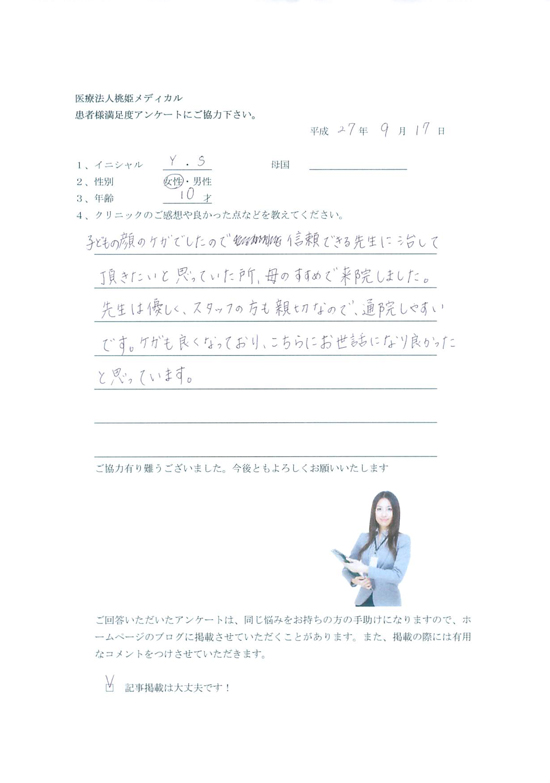 医療法人桃姫メディカル
患者様満足度アンケートにご協力下さい。
平成 27 年 9 月 17 日
1、イニシャル Y . S 母国
2、性別 女性・男性
3、年齢 10 才
4、クリニックのご感想や良かった点などを教えてください。
子どもの顔のケガでしたので 信頼できる先生に治して
頂きたいと思っていた所、母のすすめで来院しました。
先生は優しく、スタッフの方も親切なので、通院しやすい
です。ケガも良くなっており、こちらにお世話になり良かった
と思っています。
ご協力有り難うございました。今後ともよろしくお願いいたします
ご回答いただいたアンケートは、同じ悩みをお持ちの方の手助けになりますので、ホ
ームページのブログに掲載させていただくことがあります。また、掲載の際には有用
なコメントをつけさせていただきます。
記事掲載は大丈夫です！